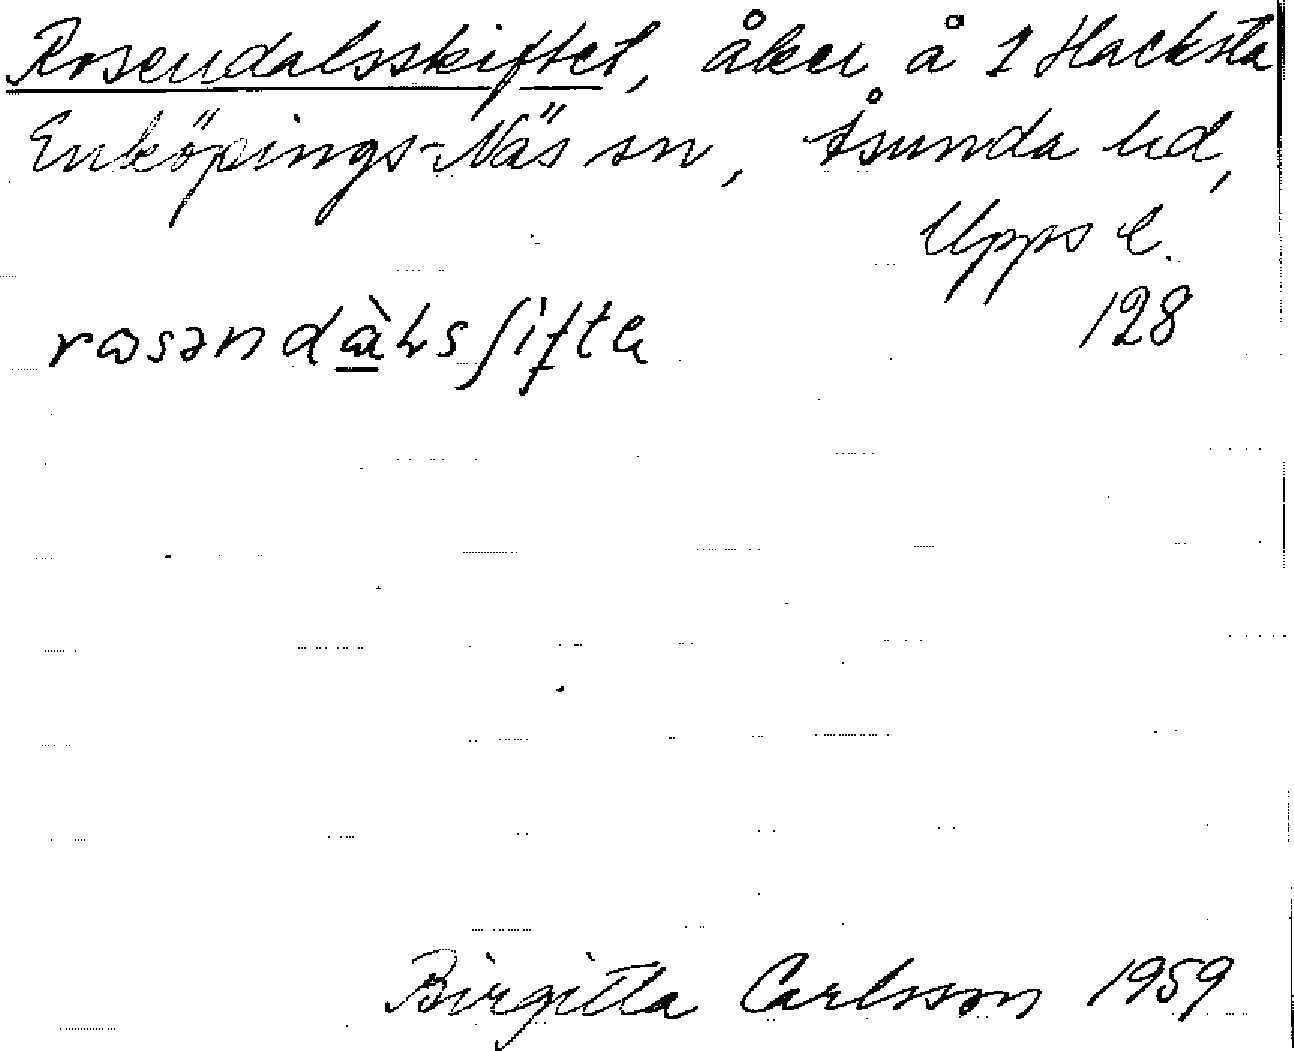 Rosendalsskiftet, åker å 1 Hacksta
Enköpings-Näs sn, Åsunda hd,
Upps l.
128
rosəndàlsʃiftə
Birgitta Carlsson 1959